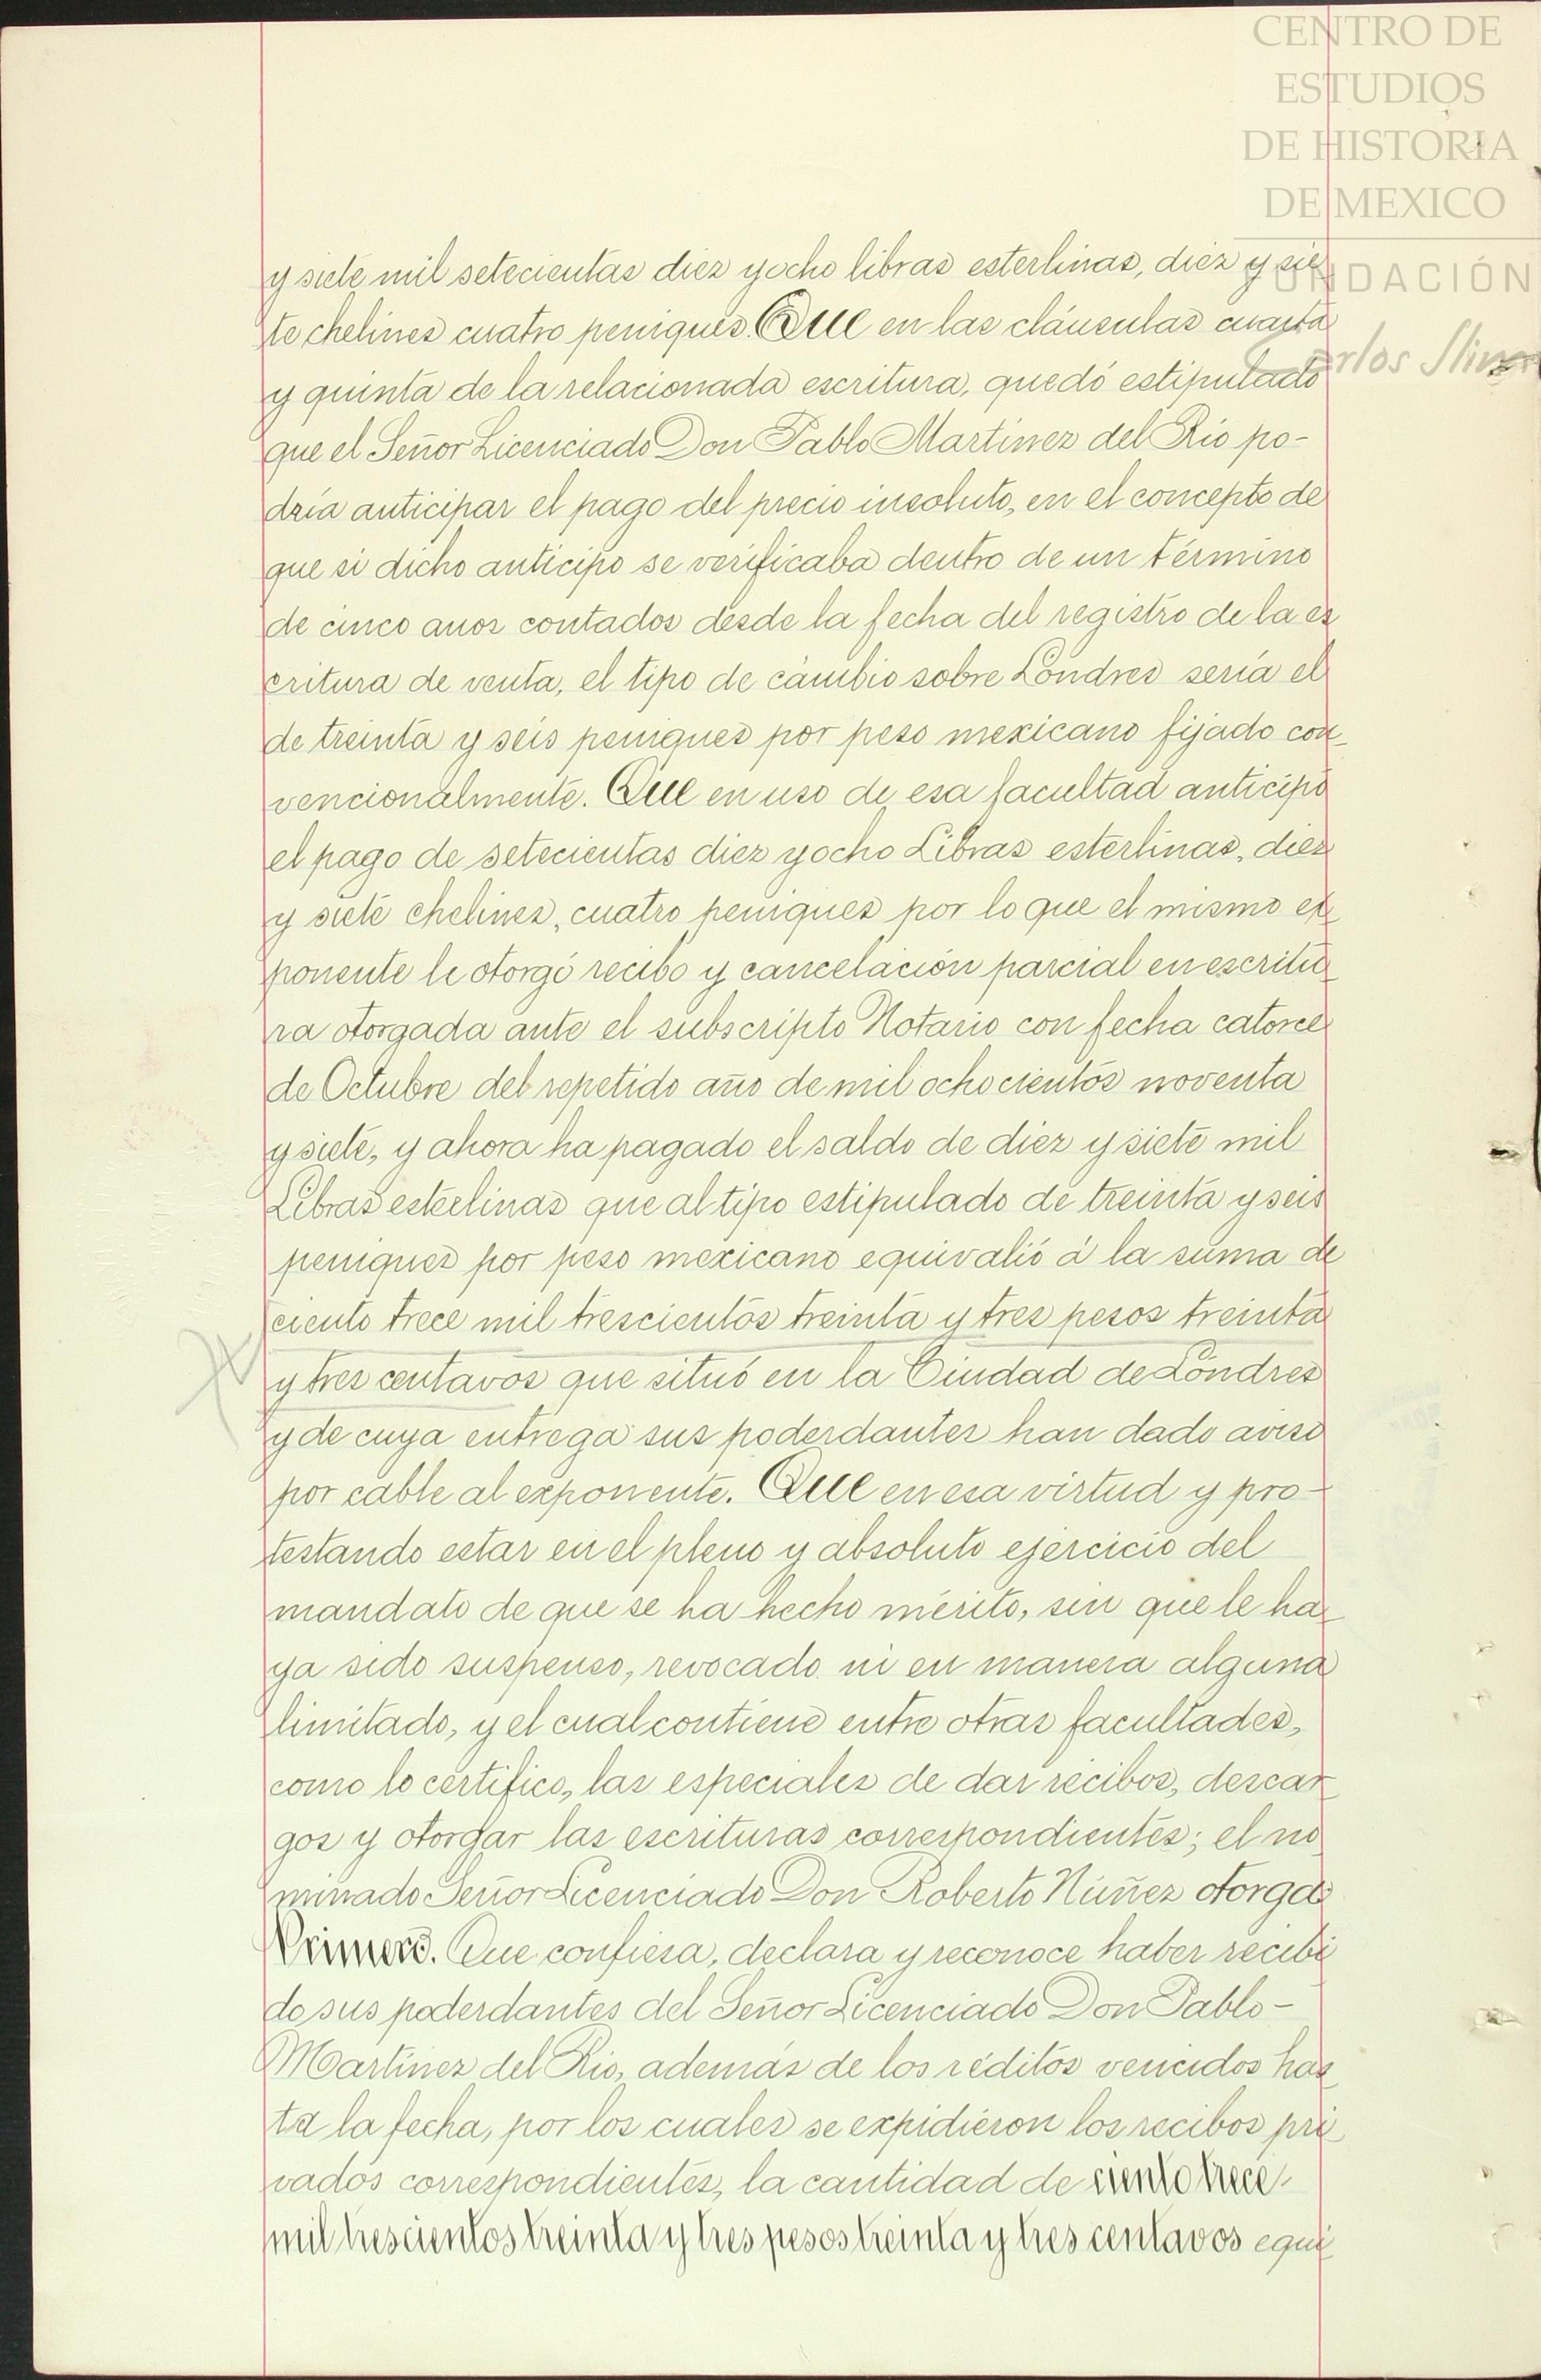 CENTRO DE
ESTUDIOS
DE HISTORIA
DE MEXICO
FUNDACIÓN
Carlos Slim
y siete mil setecientas diez y ocho libras esterlinas, diez y sie
te chelines cuatro peniques. Que en las cláusulas cuarta
y quinta de la relacionada escritura, quedó estipulado
que el Señor Licenciado Don Pablo Martinez del Rio po-
dría anticipar el pago del precio insoluto, en el concepto de
que si dicho anticipo se verificaba dentro de un término
de cinco anos contados desde la fecha del registro de la es
critura de venta, el tipo de cámbio sobre Lóndres sería el
de treinta y seis peniques por peso mexicano fijado con-
vencionalmente. Que en uso de esa facultad anticipó
el pago de setecientas diez y ocho Libras esterlinas, diez
y siete chelines, cuatro peniques por lo que el mismo ex
ponente le otorgó recibo y cancelación parcial en escritu
ra otorgada ante el subscripto Notario con fecha catorce
de Octubre del repetido año de mil ochocientos noventa
y siete, y ahora ha pagado el saldo de diez y siete mil
Libras esterlinas que al tipo estipulado de treinta y seis
peniques por peso mexicano equivalió á la suma de
ciento trece mil trescientos treinta y tres pesos treinta
y tres centavos que situó en la Ciudad de Lóndres
y de cuya entrega sus poderdantes han dado aviso
por cable al exponente. Que en esa virtud y pro-
testando estar en el pleno y absoluto ejercicio del
mandato de que se ha hecho mérito, sin que le ha-
ya sido suspenso, revocado ni en manera alguna
limitado, y el cual contiene entre otras facultades,
como lo certifico, las especiales de dar recibos, descar
gos y otorgar las escrituras correspondientes; el no
minado Señor Licenciado Don Roberto Núñez otorga
Primero. Que confiesa, declara y reconoce haber recibi
do sus poderdantes del Señor Licenciado Don Pablo-
Martinez del Rio, además de los réditos vencidos has
ta la fecha, por los cuales se expidieron los recibos pri
vados correspondientes, la cantidad de ciento trece
mil trescientos treinta y tres pesos treinta y tres centavos equi